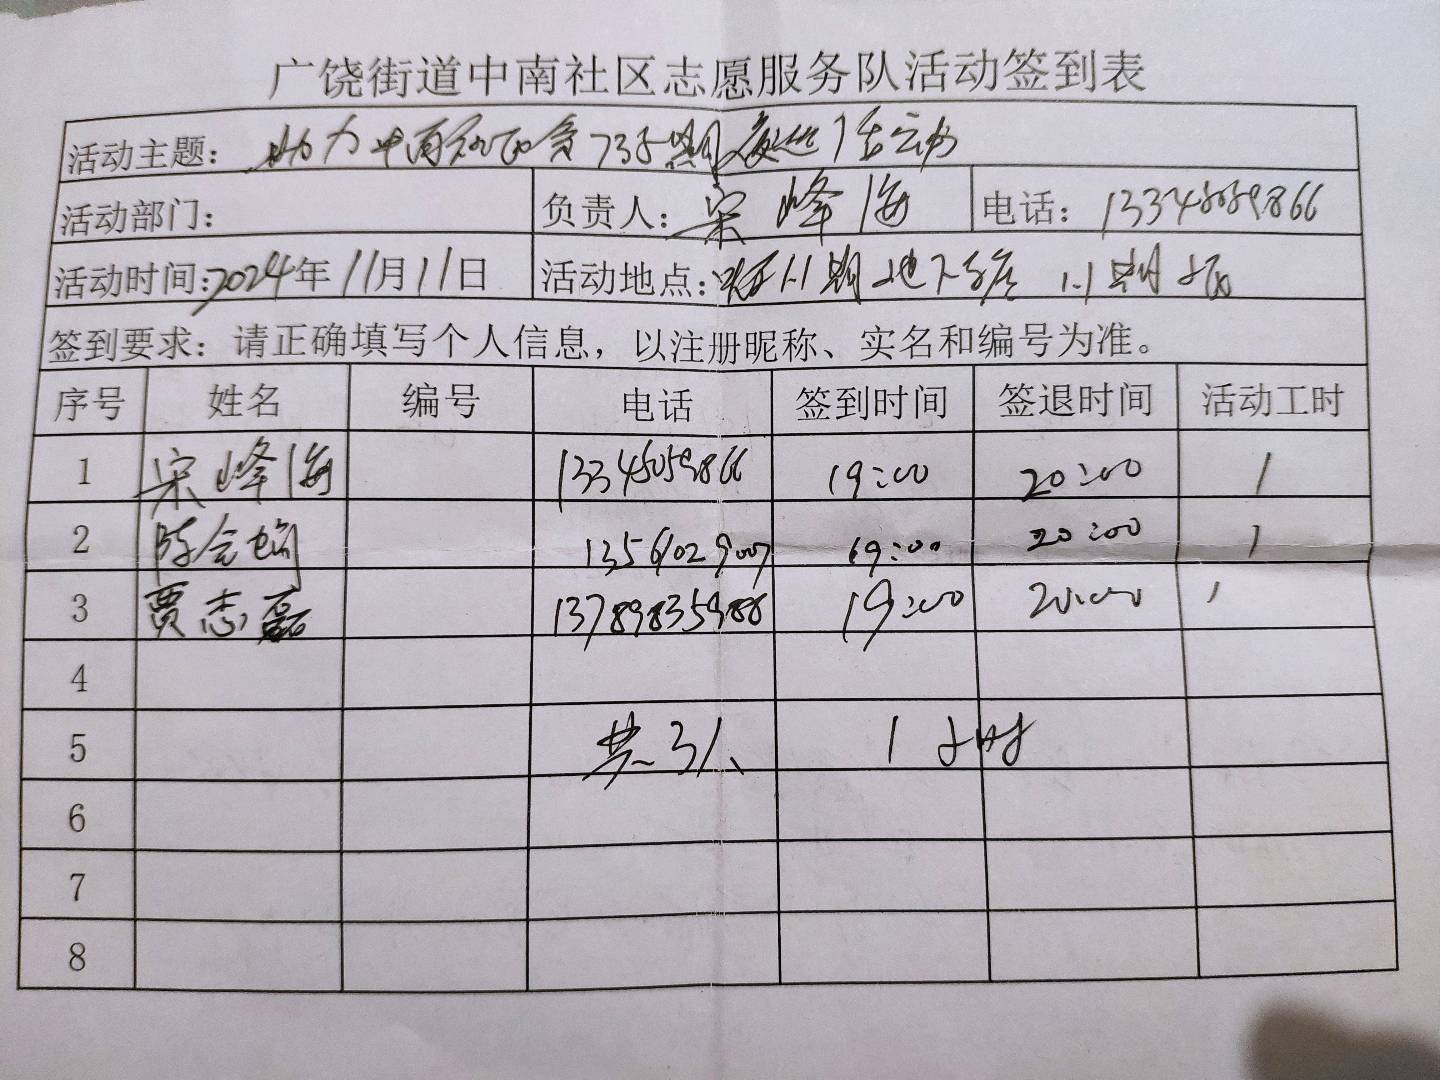 广饶街道中南社区志愿服务队活动签到表
活动主题: 助力中南 735期夜巡活动
活动部门:
负责人: 宋峰海
电话: 13345059866
活动时间: 2024年11月11日
活动地点: 1.1期地下车库 1.1期
签到要求: 请正确填写个人信息，以注册昵称、实名和编号为准。
序号 姓名 编号 电话 签到时间 签退时间 活动工时
1 宋峰海 13345059866 19:00 20:00 1
2 陈会娟 13561029007 19:00 20:00 1
3 贾志磊 13789835986 19:00 20:00 1
4
5 共3人 1小时
6
7
8